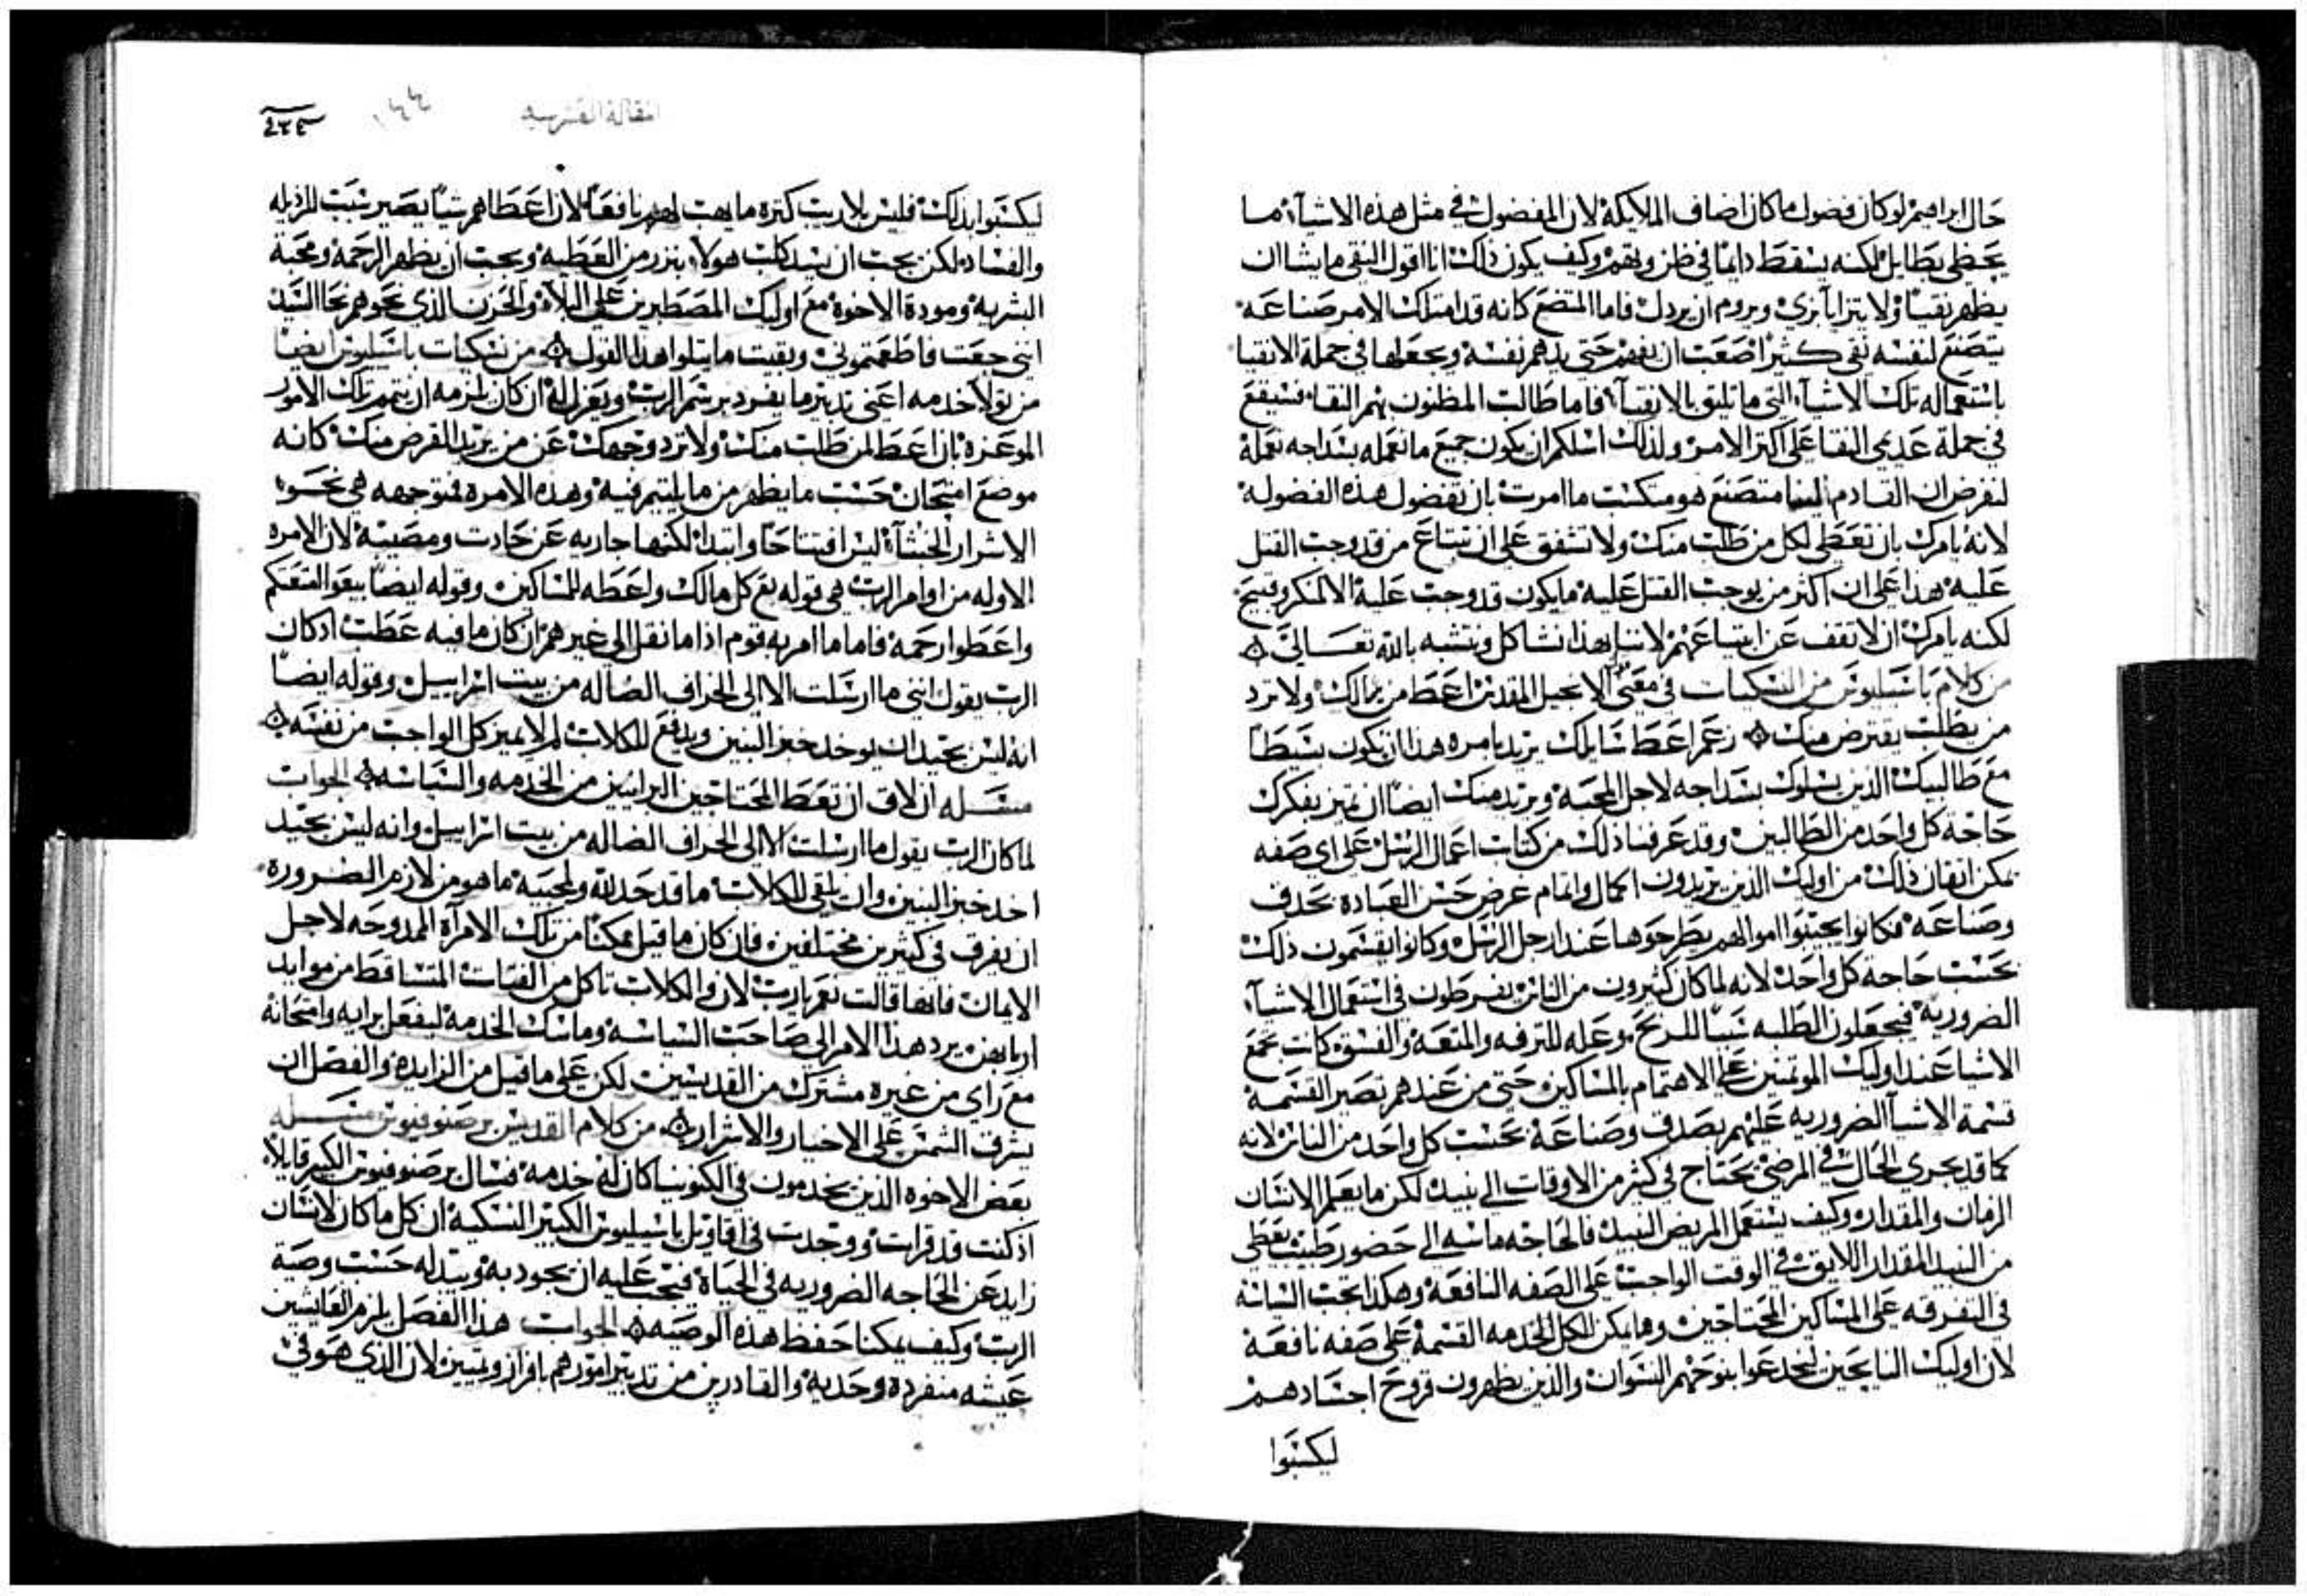 حال ابراهيم لو كان فضول ما كان اضاف الملايكة لان المفضول في مثل هذه الاشيآء ما
يحظى بطايل لكنه يسقط دايمًا في ظن وتهم وكيف يكون ذلك انا اقول النقي ما يشا ان
يظهر نقيًا ولا يترايا بزي ويروم ان يردل فاما المتضع كانه قد امتلك الامر صناعه
يتصنع لنفسه نقي كثيرًا صعب ان يفهم حتى يدهم نفسه ويجعلها في جملة الانقيا
باستعماله تلك الاشيآء التي ما تليق بالانقيآء فاما طالب المظنون بهم النقاء فسيقع
في جملة عديمي النقا على اكثر الامر ولذلك اسلكم ان يكون جميع ما نعمله بسداجه نعمله
لنفرض ان القادم الينا متصنع هو متكسب ما امرت بان تفضول هذه الفضوله
لانه يامرك بان تعطي لكل من طلب منك ولا تشفق على ان تبتاع من قد وجب القتل
عليه هذا على ان اكثر من يوجب القتل عليه ما يكون قد وجب عليه الا لمنكر وقبيح
لكنه يامرك ان لا تقف عن ابتياعهم لاننا بهذا نشاكل ونتشبه بالله تعالى
من كلام باسيليوس من النسكيات في معنى الانجيل المقدس اعط من يسالك ولا ترد
من يطلب يقترض منك زعم اعط سايلك يريد بامره هذا ان تكون بسيطًا
مع طالبيك الذين يسلوك بسداجه لاجل المحبه ويريد منك ايضًا ان تميز بفكرك
حاجة كل واحد من الطالبين وقد عرفنا ذلك من كتاب اعمال الرسل على اي صفه
يمكن اتقان ذلك من اوليك الذين يريدون اكمال واتمام عرض حسن العباده بحدق
وصناعه فكانوا يجيبوا اموالهم يطرحوها عند ارجل الرسل وكانوا يقسمون ذلك
بحسب حاجة كل واحد لانه لما كان كثيرون من الناس يفرطون في استعمال الاشيآء
الضروريه فيجعلون الطلبه سببًا للربح وعله للترفه والمتعه والفسق كانت تجمع
الاشيا عند اوليك الموتمنين على الاهتمام بالمساكين حتى من عندهم تصير القسمه
قسمة الاشيآ الضروريه عليهم بصدق وصناعه بحسب كل واحد من الناس لانه
كما قد يجري الحال في المرضى يحتاج في كثر من الاوقات الى نبيد لكن ما يعلم الانسان
الزمان والمقدار وكيف يستعمل المريض النبيد فالحاجه ماسه الى حضور طبيب يعطي
من النبيد المقدار اللايق في الوقت الواجب على الصفه النافعه وهكدا يجب السياسه
في التفرقه على المساكين المحتاجين وما يمكن لكل الخدمه القسمة على صفه نافعه
لان اوليك النايحين ليخدعوا بنوحهم النسوان والذين يظهرون قروح اجسادهم
ليكسبوا
٤٣٤
ليكسبوا بذلك فليس بلا ريب كثرة ما يهب لهم نافعًا لان اعطاهم شيًا يصير سبب للرذيله
والفساد لكن يجب ان نبيد كلب هولاء بنزر من العطيه ويجب ان يظهر الرحمه ومحبة
البشريه ومودة الاخوه مع اوليك المصطبرين على البلاء والحزن الذي نحوهم نحا السيد
انني جعت فاطعمتموني وبقيت ما يتلوا هذا القول من نسكيات باسيليوس ايضًا
من تولا خدمه اعني تدبير ما يفرد برسم الرب ويعزل له ان كان يلزمه ان يتمم تلك الامور
الموعزه بان اعط لمن طلب منك ولا ترد وجهك عن من يريد القرض منك كانه
موضع امتحان حسب ما يظهر من ما يلتيم فيه وهذه الامره فتوجهه هي نحو
الاشرار الخبثآء ليس افتتاحًا وابتدا لكنها جاريه عن حادث ومصيبه لان الامره
الاوله من اوامر الرب هي قوله بع كل مالك واعطه للمساكين وقوله ايضًا بيعوا امتعتكم
واعطوا رحمه فاما ما امر به قوم اذا ما نقل الى غيرهم ان كان ما فيه عطب اد كان
الرب يقول انني ما ارسلت الا الى الخراف الضاله من بيت اسراييل وقوله ايضًا
انه ليس بجيد ان يوخد خبز البنين ويدفع للكلاب لم لا يميز كل الواجب من نفسه
مسله ان لاق ان تعط المحتاجين البرانيين من الخدمه والسياسه الجواب
لما كان الرب يقول ما ارسلت الا الى الخراف الضاله من بيت اسراييل وانه ليس بجيد
اخد خبز البنين وان يلقى للكلاب ما قد حد لله ولمحبيه ما هو من لازم الضروره
ان يفرق في كثيرين مختلفين فان كان ما قيل ممكنًا من تلك الامرآة الممدوحه لاجل
الايمان فانها قالت نعم يا رب لان والكلاب تاكل من الفتات المتساقط من موايد
اربابهن يرد هذا الامر الى صاحب السياسه وماسك الخدمه ليفعل برايه وامتحانه
مع راي من غيره مشترك من القديسين لكن على ما قيل من الزايده والفصل ان
يشرف الشمس على الاخيار والاشرار من كلام القديس برصنوفيوس مسله
بعض الاخوه الذين يخدمون في الكنونيا كان له خدمه فسال برصنوفيوس الكبير قايلًا
اد كنت قد قرات ووجدت في اقاويل باسيليوس الكبير النسكيه ان كل ما كان لانسان
زايد عن الحاجه الضروريه في الحياه فيجب عليه ان يجود به ويبدله حسب وصية
الرب وكيف يمكنا حفظ هذه الوصيه الجواب هذا الفصل يلزم العايشين
عيشه منفرده وحديه والقادرين من تدبير امورهم بافراز وتمييز لان الذي هو في